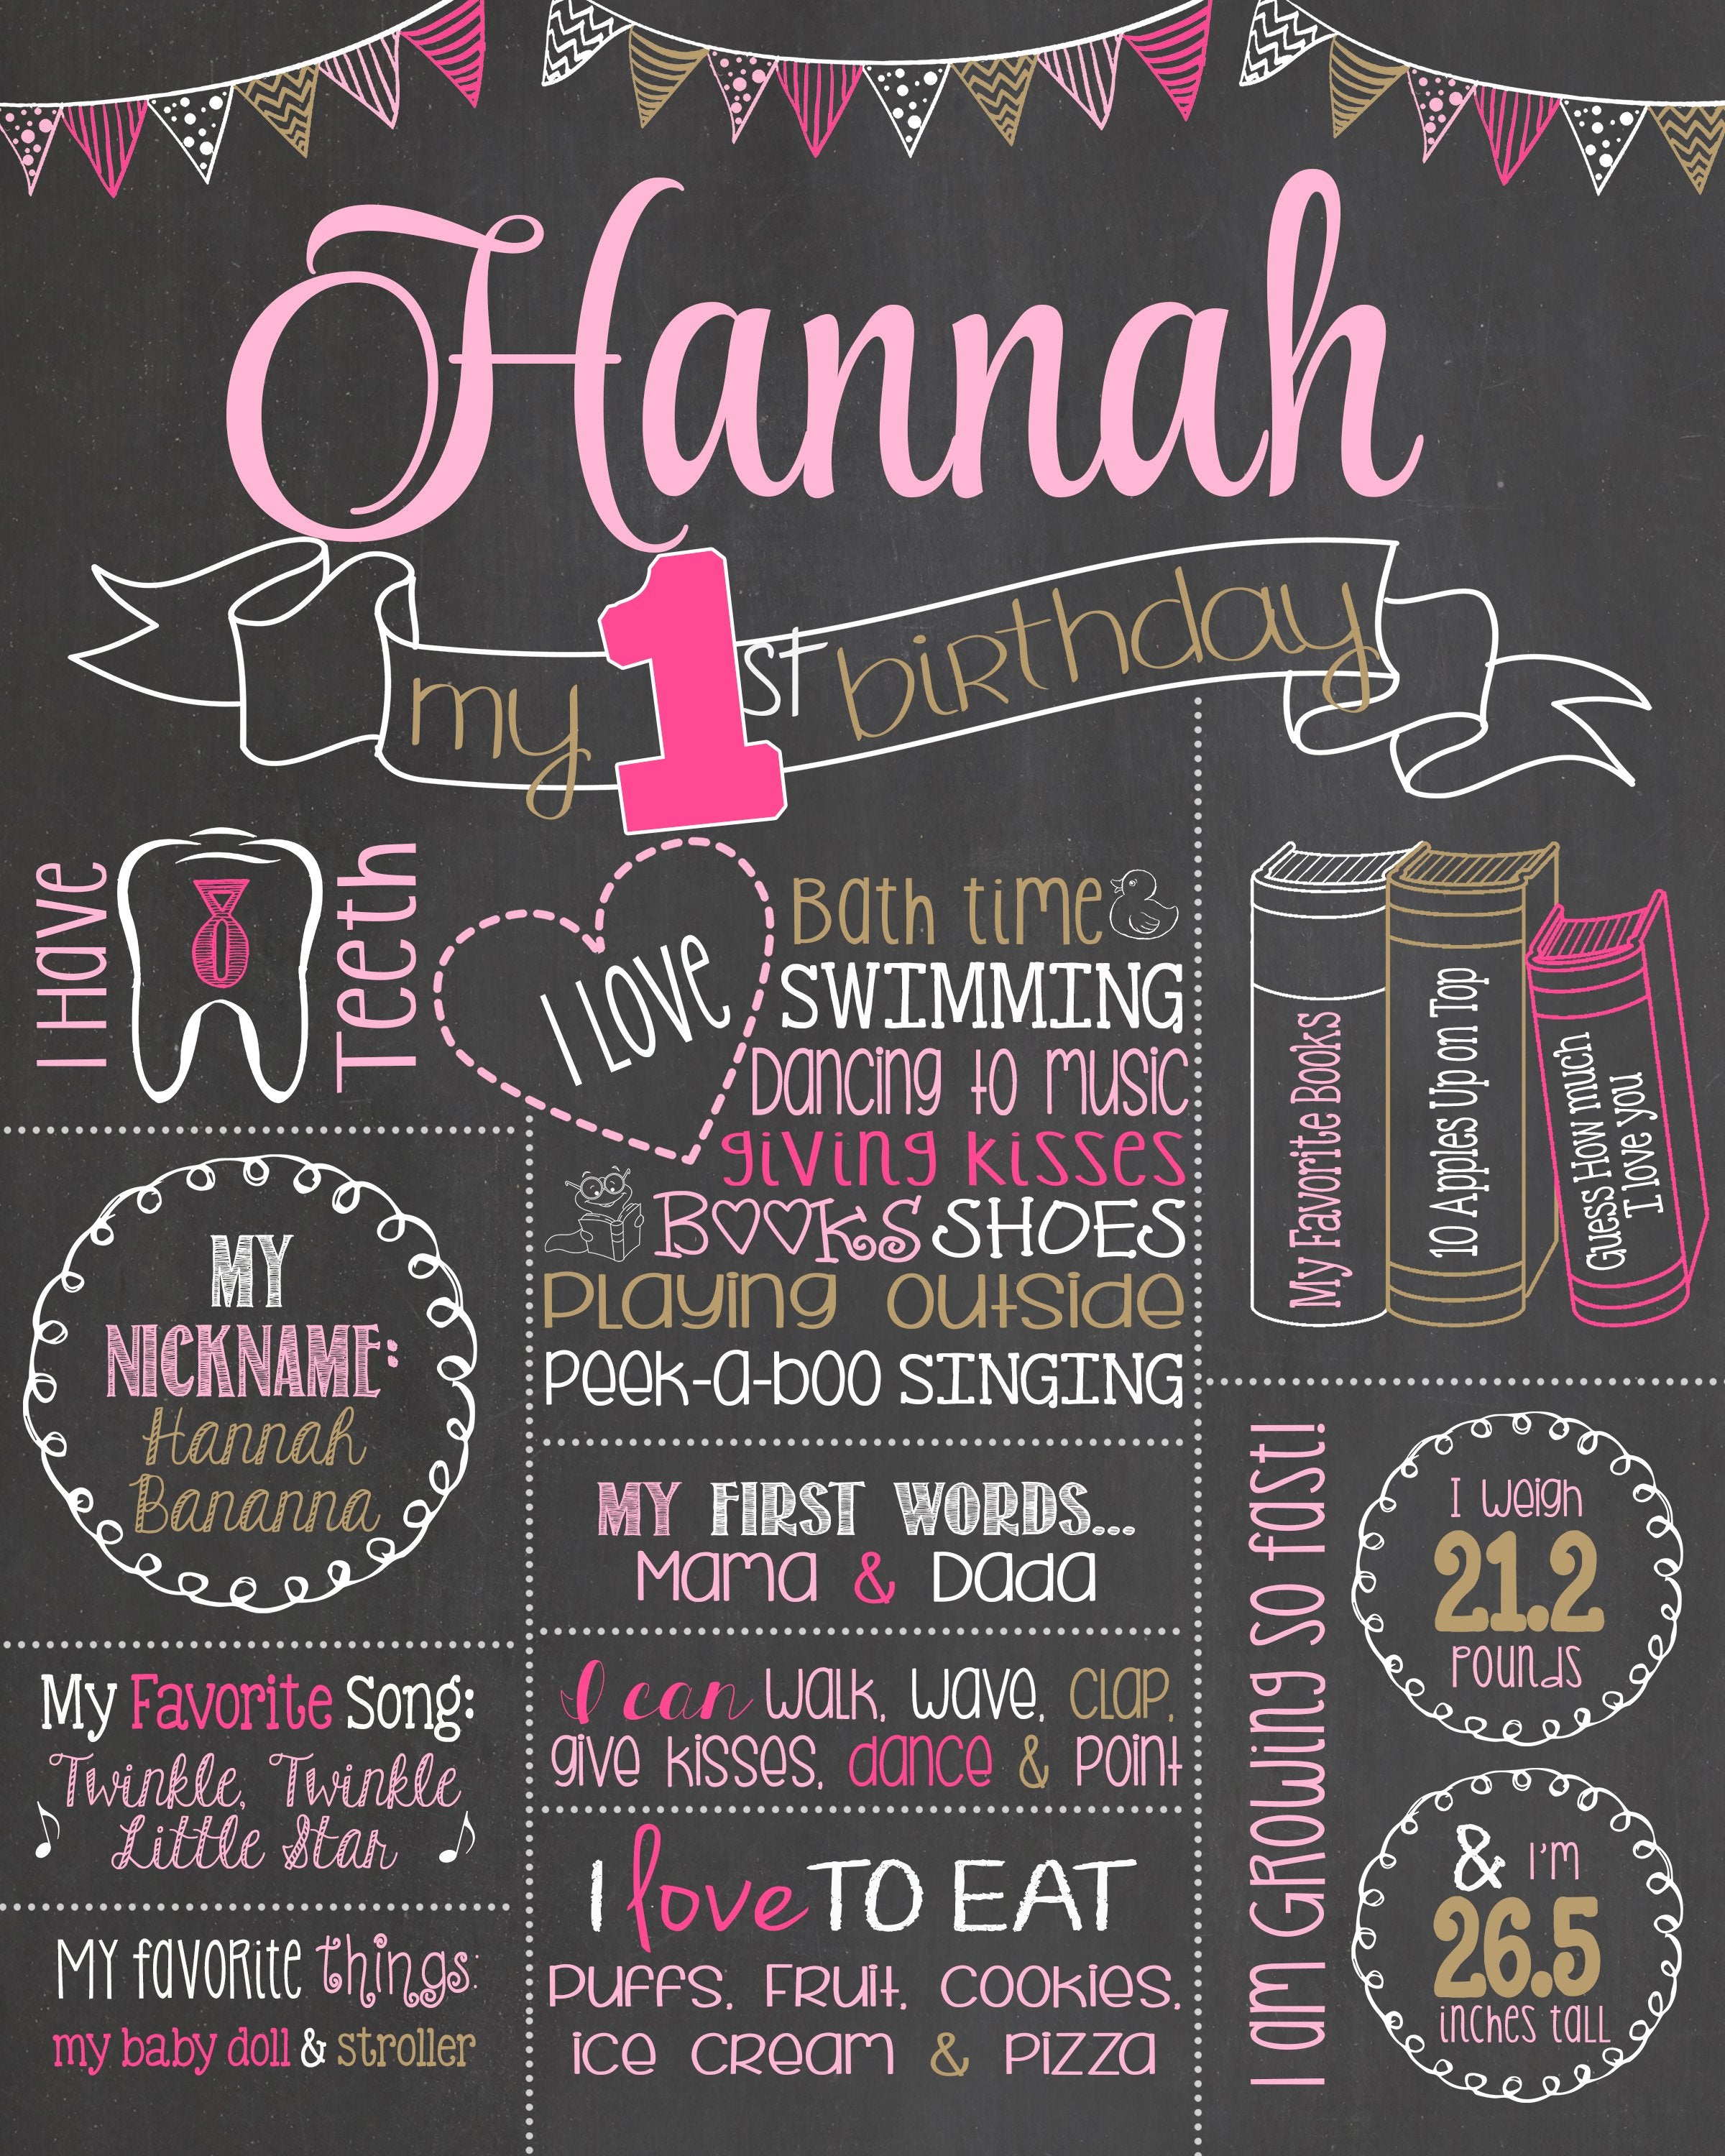 Hannah
my 1st birthday
I Have
8
Teeth
I Love
Bath time &
SWIMMING
Dancing to music
giving kisses
Books SHOES
Playing outside
Peek-a-boo SINGING
My Favorite Books
10 Apples Up on Top
Guess How much
I love you
MY
NICKNAME:
Hannah
Bananna
MY FIRST WORDS...
Mama & Dada
My Favorite Song:
Twinkle, Twinkle
Little Star
I can walk, wave, clap,
give kisses, dance & point
MY favorite things:
my baby doll & stroller
I love TO EAT
Puffs, Fruit, Cookies,
ice cream & pizza
I am Growing so fast!
I weigh
21.2
pounds
& I'm
26.5
inches tall